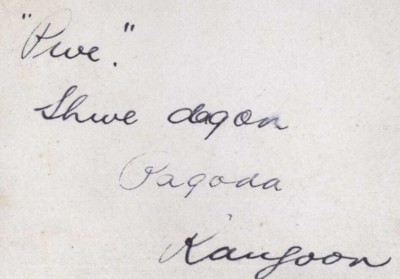 "Pwe."
Shwe dagon
Pagoda
Rangoon